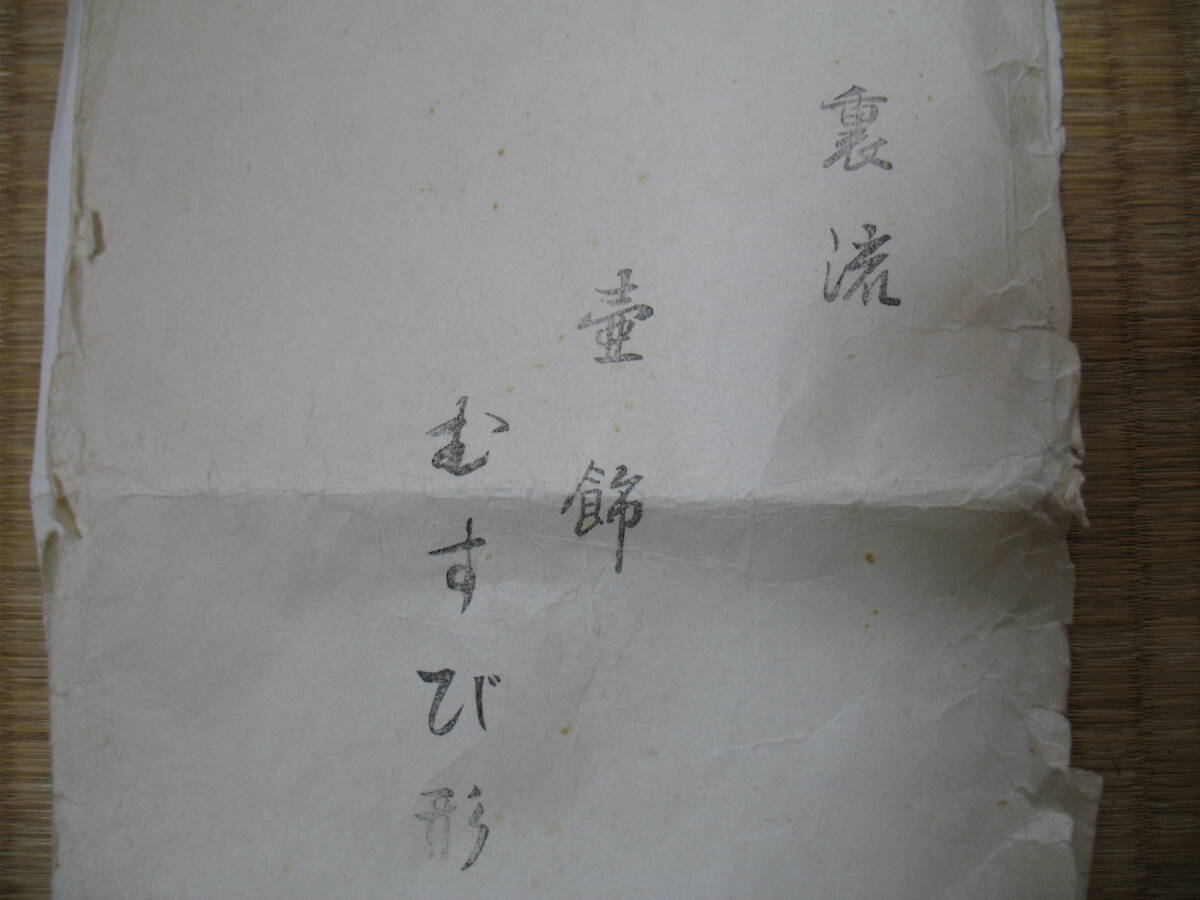 裏流
壷飾
むすび形